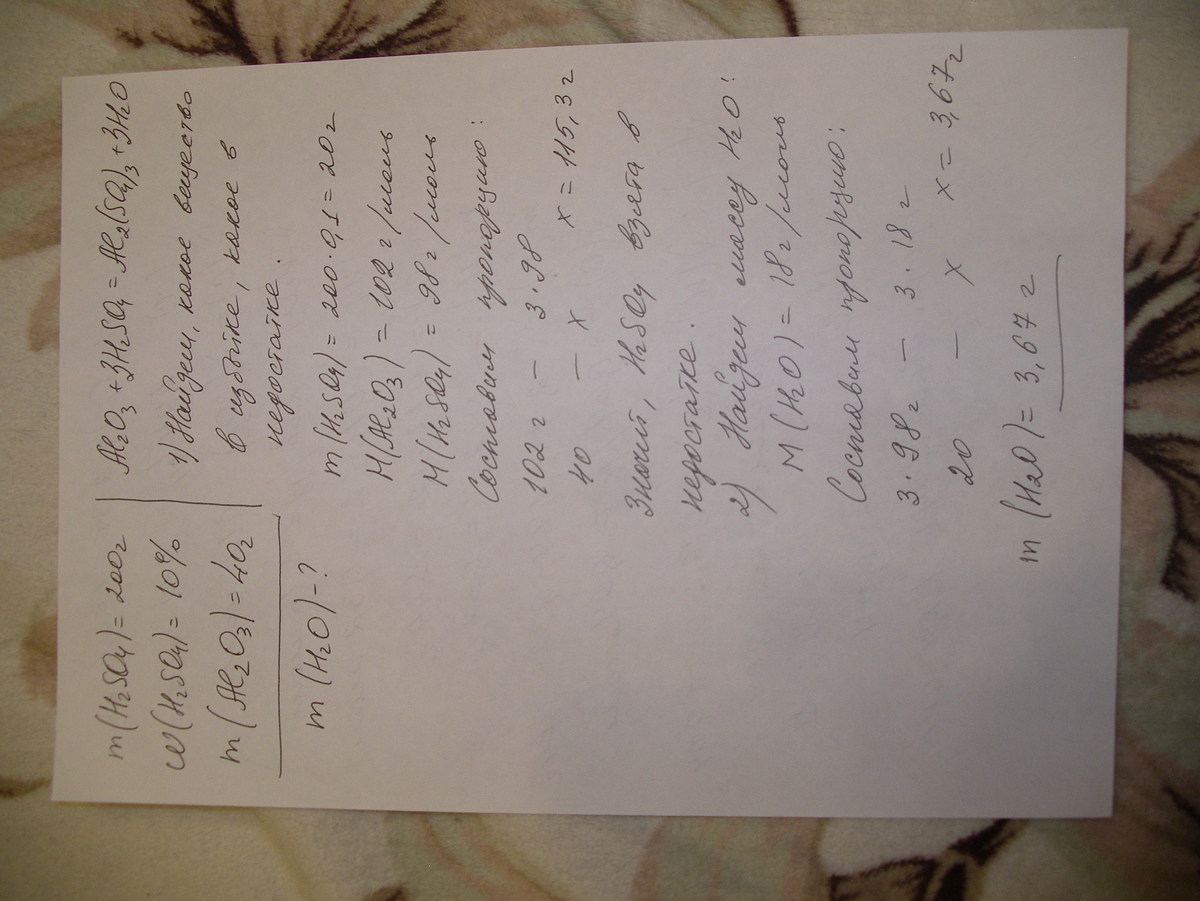 m(H₂SO₄)=200г
w(H₂SO₄)=10%
m(Al₂O₃)=40г
m(H₂O)-?
Al₂O₃+3H₂SO₄=Al₂(SO₄)₃+3H₂O
1) Найдем, какое вещество
в избытке, какое в
недостатке.
m(H₂SO₄)=200·0,1=20г
M(Al₂O₃)=102г/моль
M(H₂SO₄)=98г/моль
Составим пропорцию:
102г - 3·98
40 - x x=115,3г
Значит, H₂SO₄ взята в
недостатке.
2) Найдем массу H₂O:
M(H₂O)=18г/моль
Составим пропорцию:
3·98г - 3·18г
20 - x x=3,67г
m(H₂O)=3,67г